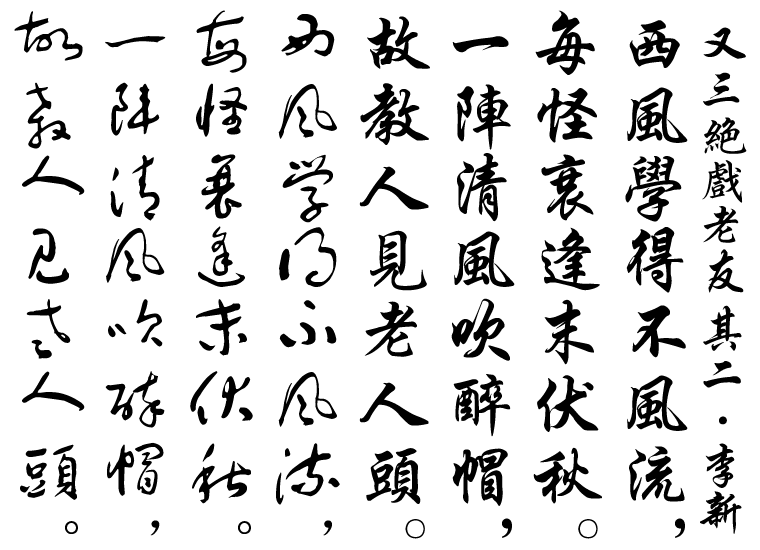 又三絕戲老友其二·李新
西風學得不風流，
每怪衰逢末伏秋。
一陣清風吹醉帽，
故教人見老人頭。
西風學得不風流，
每怪衰逢末伏秋。
一陣清風吹醉帽，
故教人見老人頭。